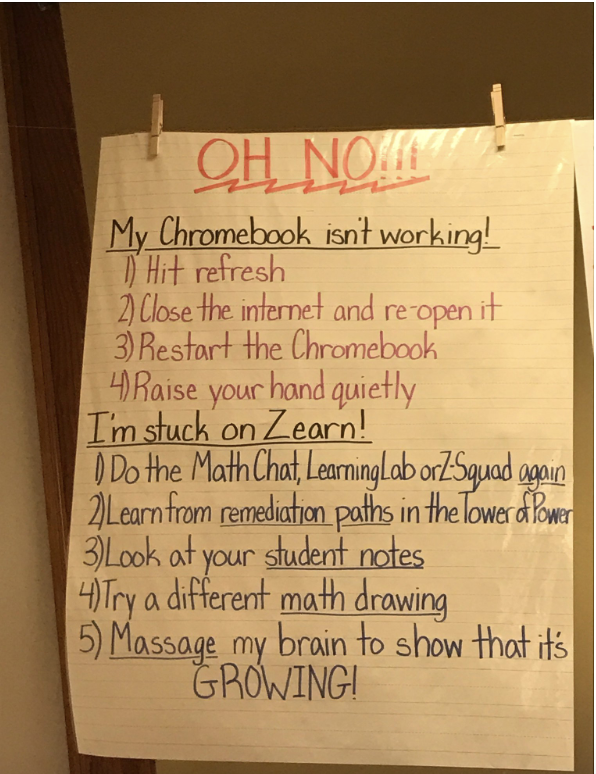 OH NO!!!
My Chromebook isn't working!
1) Hit refresh
2) Close the internet and re-open it
3) Restart the Chromebook
4) Raise your hand quietly
I'm stuck on Zearn!
1) Do the Math Chat, Learning Lab or Z-Squad again
2) Learn from remediation paths in the Tower of Power
3) Look at your student notes
4) Try a different math drawing
5) Massage my brain to show that it's
GROWING!